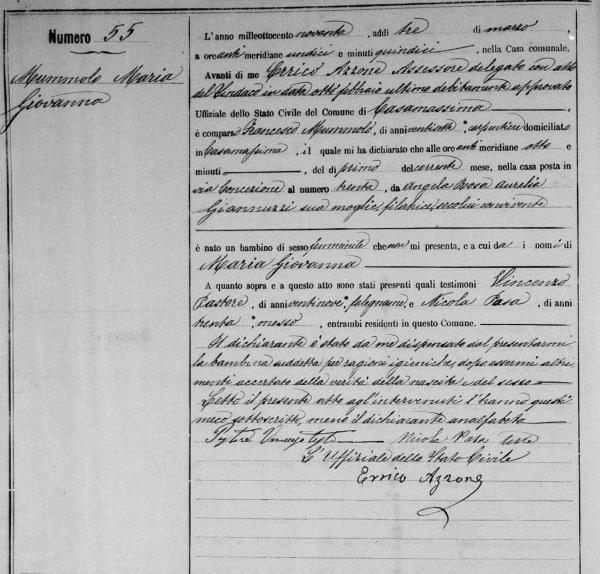 Numero 55
Mummolo Maria
Giovanna
L'anno milleottocento novanta, addì tre di marzo
a ore anti meridiane undici e minuti quindici, nella Casa comunale.
Avanti di me Errico Azzone Assessore delegato con atto
del Sindaco in data otto febbraio ultimo debitamente approvato
Uffiziale dello Stato Civile del Comune di Casamassima,
è comparso Francesco Mummolo, di anni ventisette, carpentiere domiciliato
in Casamassima, il quale mi ha dichiarato che alle ore anti meridiane otto e
minuti, del dì primo del corrente mese, nella casa posta in
via Concezione al numero trenta, da Angela Rosa Aurelia
Giannuzzi sua moglie, filatrice, secolui convivente
è nato un bambino di sesso femminile che non mi presenta, e a cui dà i nomi di
Maria Giovanna
A quanto sopra e a questo atto sono stati presenti quali testimoni Vincenzo
Pastore, di anni ventinove, falegname, e Nicola Pasa, di anni
trenta, messo, entrambi residenti in questo Comune.
Il dichiarante è stato da me dispensato dal presentarmi
la bambina suddetta per ragioni igieniche, dopo essermi altri
menti accertato della verità della nascita e del sesso
Letto il presente atto agl'intervenuti l'hanno questi
meco sottoscritto, meno il dichiarante analfabeta
Nicola Pasa
L'Uffiziale dello Stato Civile
Errico Azzone